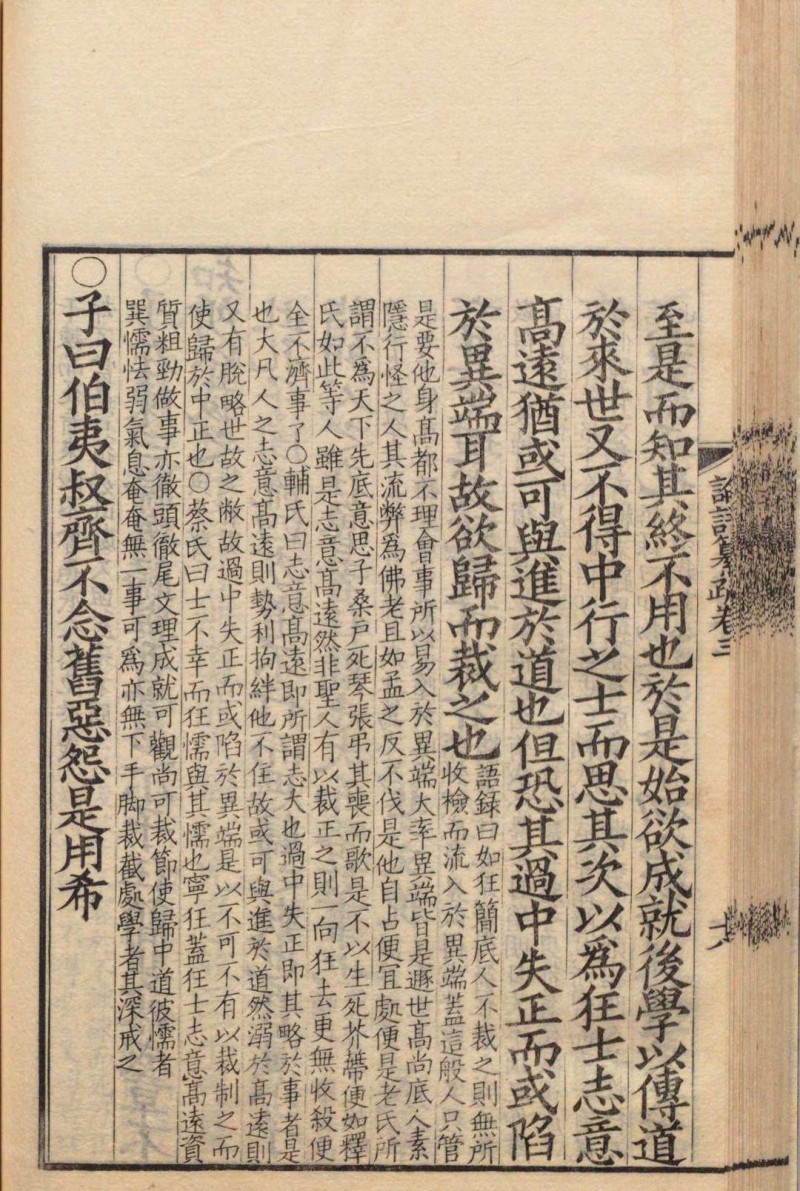 至是而知其終不用也於是始欲成就後學以傳道
於來世又不得中行之士而思其次以爲狂士志意
高遠猶或可與進於道也但恐其過中失正而或陷
於異端耳故欲歸而裁之也
語録曰如狂簡底人不裁之則無所
收檢而流入於異端蓋這般人只管
是要他身高都不理會事所以易入於異端大率異端皆是遯世高尚底人素
隱行怪之人其流弊爲佛老且如孟之反不伐是他自占便宜處便是老氏所
謂不爲天下先底意思子桑戸死琴張弔其喪而歌是不以生死芥蔕便如釋
氏如此等人雖是志意高遠然非聖人有以裁正之則一向狂去更無收殺便
全不濟事了○輔氏曰志意高遠即所謂志大也過中失正即其略於事者是
也大凡人之志意高遠則勢利拘絆他不住故或可與進於道然溺於高遠則
又有脫略世故之敝故過中失正而或陷於異端是以不可不有以裁制之而
使歸於中正也○蔡氏曰士不幸而狂懦與其懦也寧狂蓋狂士志意高遠資
質粗勁做事亦徹頭徹尾文理成就可觀尚可裁節使歸中道彼懦者
巽懦怯弱氣息奄奄無一事可爲亦無下手脚裁截處學者其深戒之
○子曰伯夷叔齊不念舊惡怨是用希
論語纂疏卷三